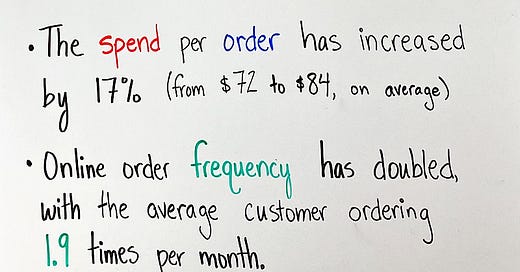 • The spend per order has increased
by 17% (from $72 to $84, on average)
• Online order frequency has doubled,
with the average customer ordering
1.9 times per month.